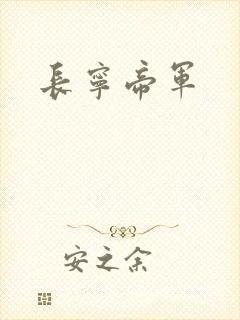 長寧帝軍
安之余